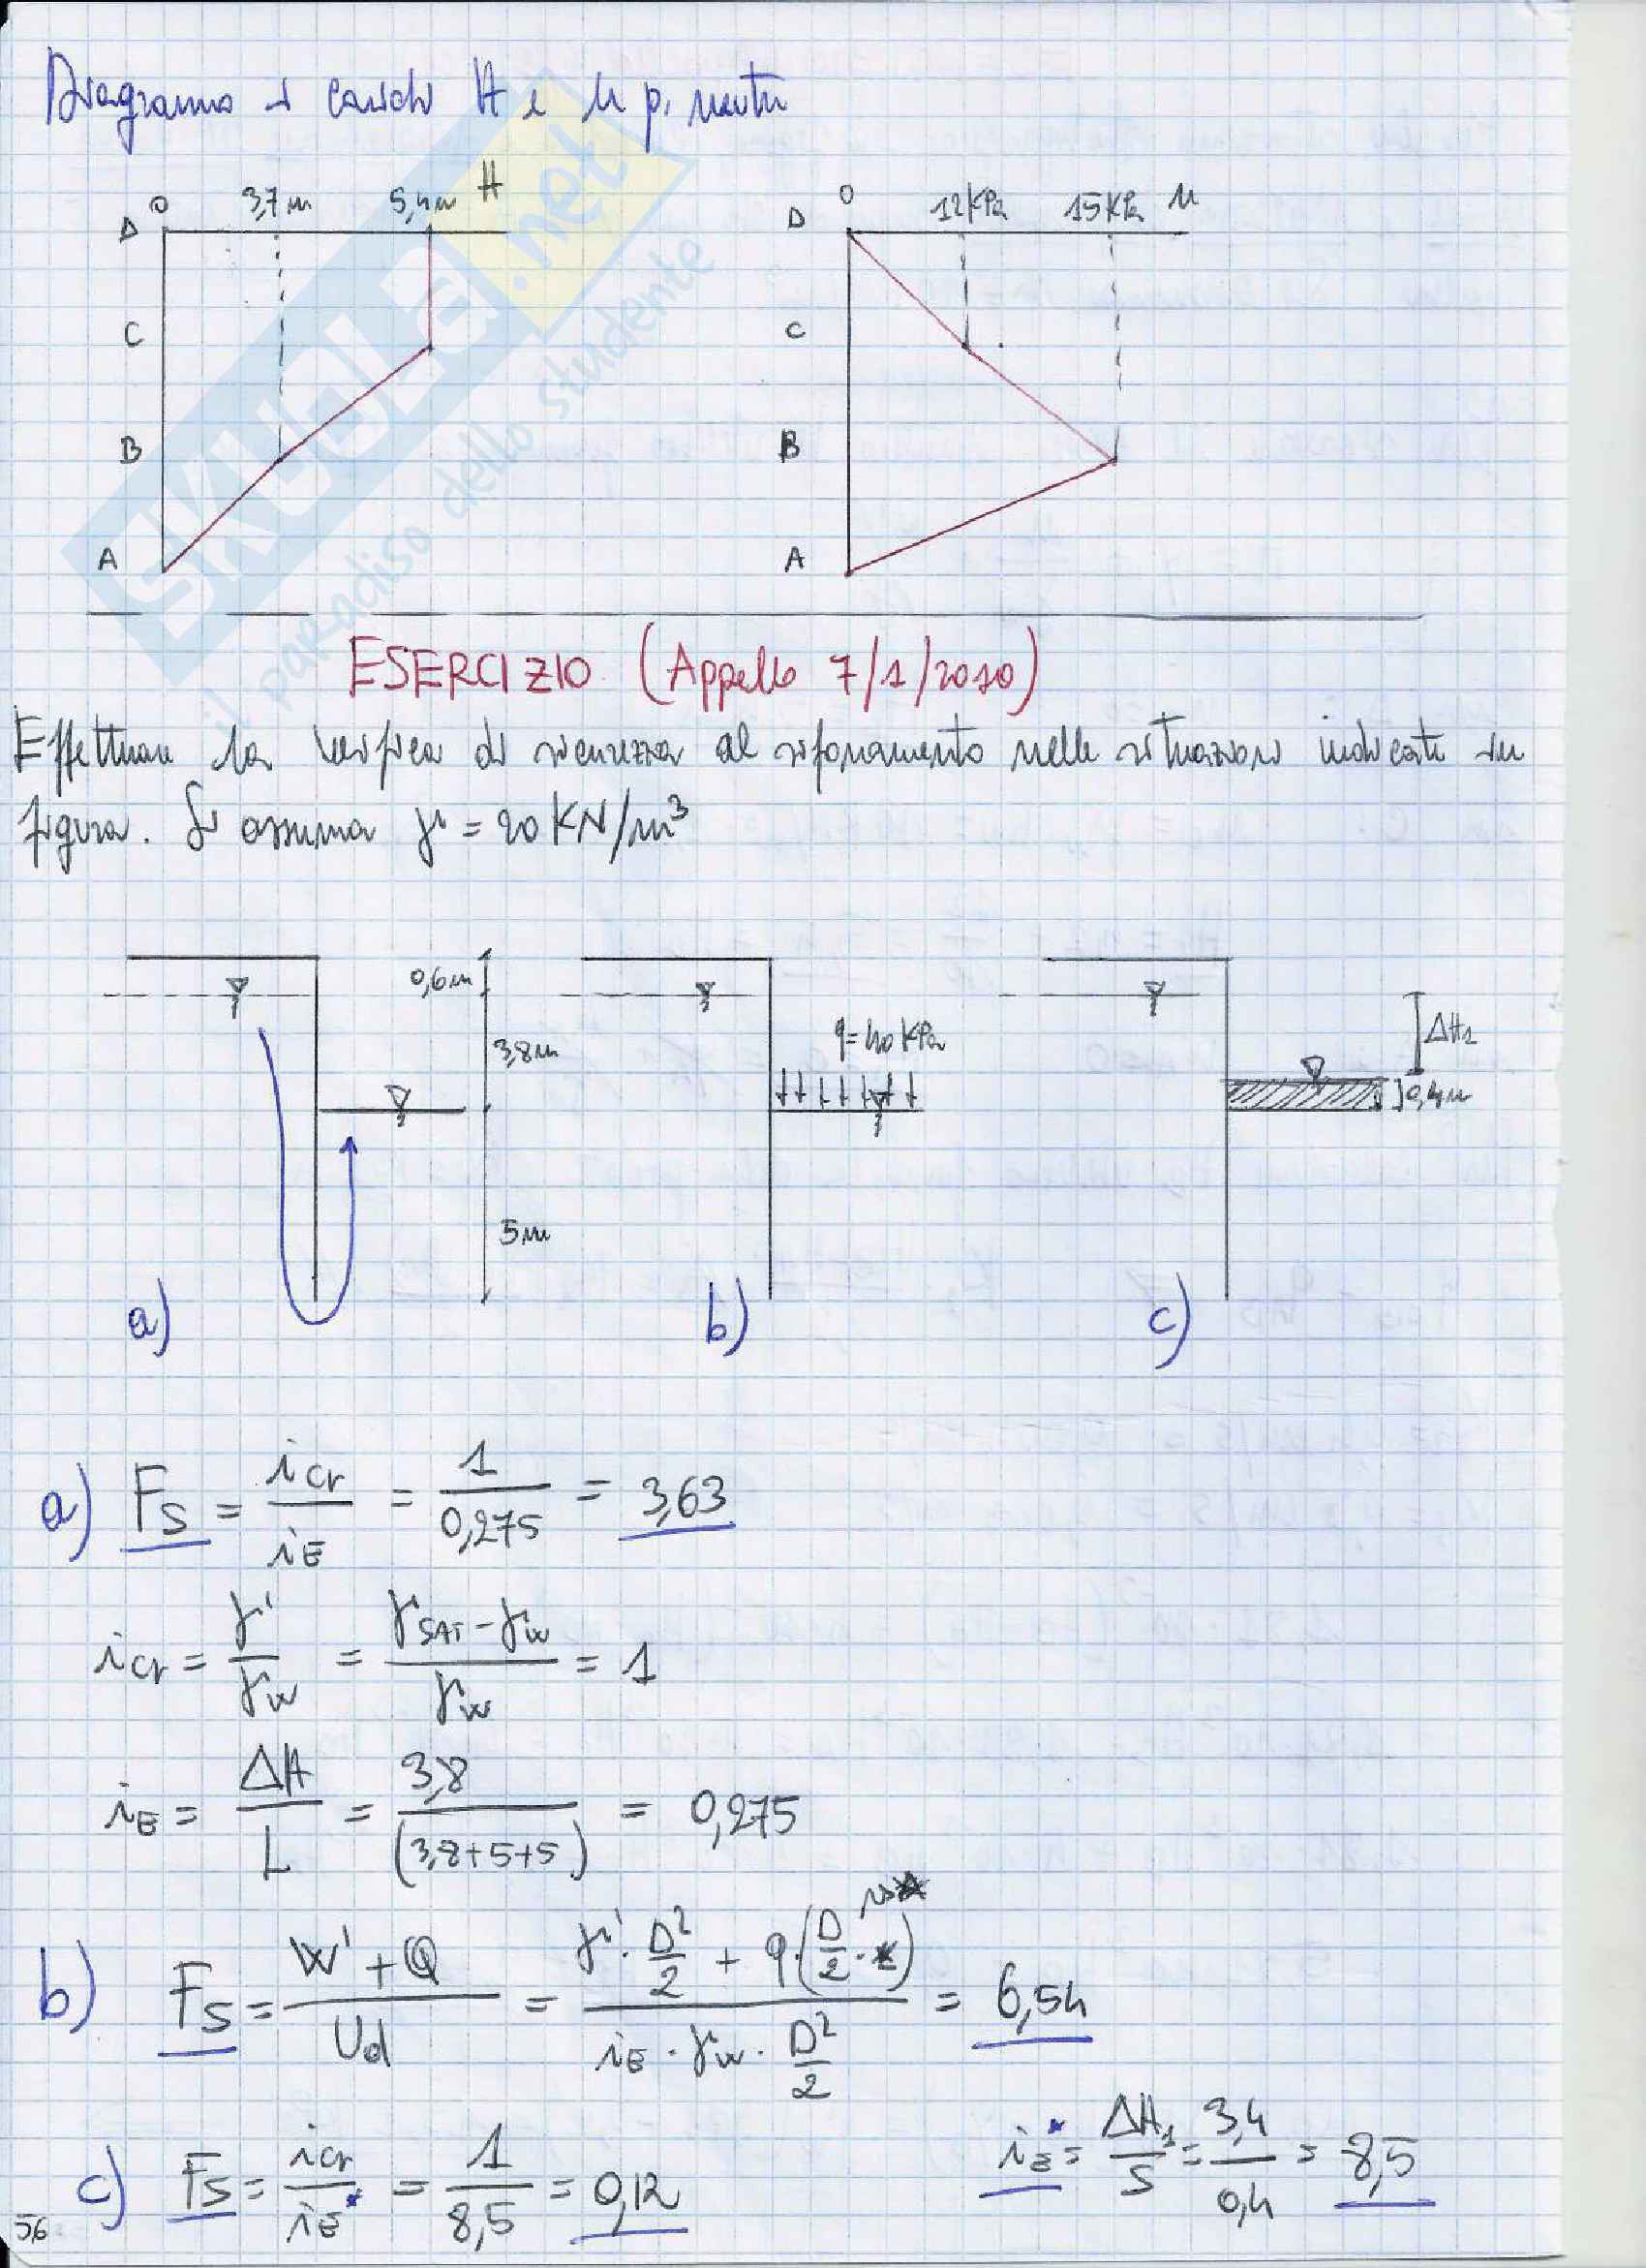 Diagramma di carichi H e u p. neutre
0 3,7m 5,4m H
D
C
B
A
0 12KPa 15KPa u
D
C
B
A
ESERCIZIO (Appello 7/1/2010)
Effettuare la verifica di sicurezza al sifonamento nelle situazioni indicate in
figura. Si assuma γ = 20 KN/m³
0,6m
3,8m
5m
a)
q=40KPa
b)
ΔH1
0,4m
c)
a) Fs = icr / iE = 1 / 0,275 = 3,63
icr = γ' / γw = (γSAT - γw) / γw = 1
iE = ΔH / L = 3,8 / (3,8+5+5) = 0,275
b) Fs = (W' + Q) / Ud = (γ' · D²/2 + q · (D/2 · )) / (iE · γw · D²/2) = 6,54
c) Fs = icr / iE* = 1 / 8,5 = 0,12
iE* = ΔH1 / S = 3,4 / 0,4 = 8,5
56
SKUOLA.net
il paradiso dello studente